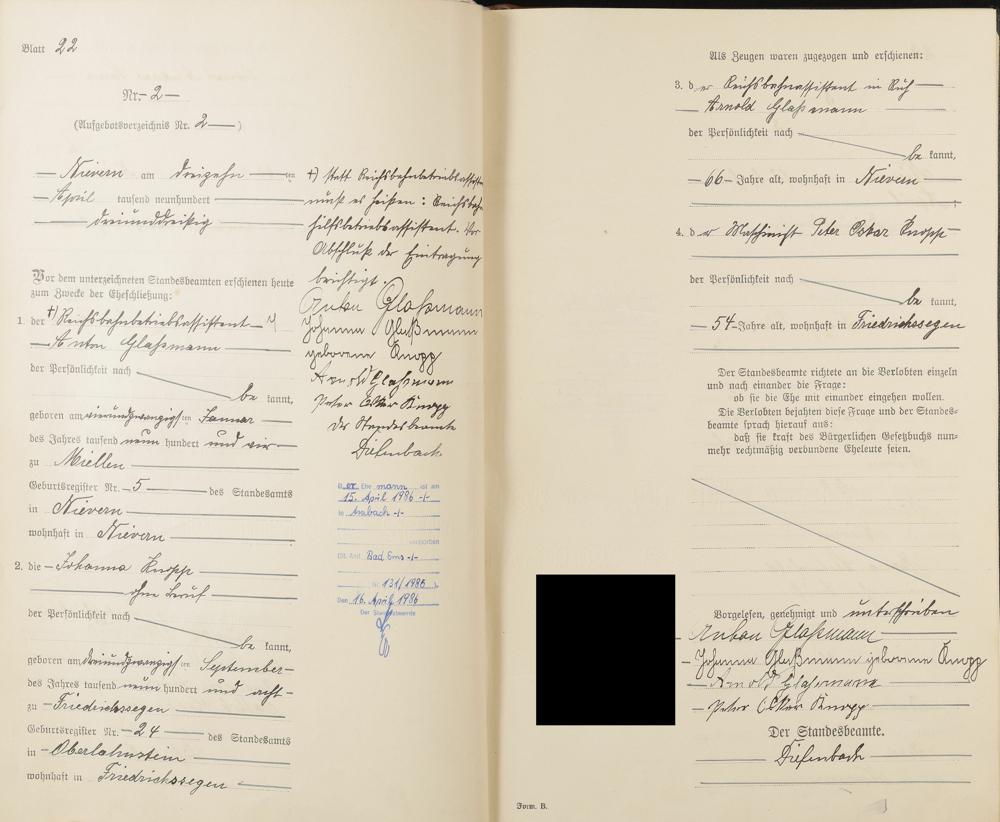 Blatt 22
Nr. 2
(Aufgebotsverzeichnis Nr. 2)
Nievern am dreizehn ten
April tausend neunhundert
dreiunddreißig
Vor dem unterzeichneten Standesbeamten erschienen heute
zum Zwecke der Eheschließung:
1. der +) Reichsbahnbetriebsassistent
Anton Glaßmann
der Persönlichkeit nach
be kannt,
geboren am vierundzwanzigsten Januar
des Jahres tausend neun hundert und vier
zu Miellen
Geburtsregister Nr. 5 des Standesamts
in Nievern
wohnhaft in Nievern
2. die Johanna Knopp
ohne Beruf
der Persönlichkeit nach
be kannt,
geboren am dreiundzwanzigsten September
des Jahres tausend neun hundert und acht
zu Friedrichssegen
Geburtsregister Nr. 24 des Standesamts
in Oberlahnstein
wohnhaft in Friedrichssegen
+) statt Reichsbahnbetriebsassistent
muß es heißen: Reichsbahn
hilfsbetriebsassistent. Vor
Abschluß der Eintragung
berichtigt.
Anton Glaßmann
Johanna Glaßmann
geborene Knopp
Arnold Glaßmann
Peter Oskar Knopp
Der Standesbeamte
Diefenbach
Der Ehe mann ist am
15. April 1986 -/-
in Arzbach -/-
verstorben
(St. Amt Bad Ems -/-
Nr. 131/1986 ).
Den 16. April 1986
Der Standesbeamte
Als Zeugen waren zugezogen und erschienen:
3. der Reichsbahnassistent in Ruh
Arnold Glaßmann
der Persönlichkeit nach
be kannt,
66 Jahre alt, wohnhaft in Nievern
4. der Maschinist Peter Oskar Knopp
der Persönlichkeit nach
be kannt,
54 Jahre alt, wohnhaft in Friedrichssegen
Der Standesbeamte richtete an die Verlobten einzeln
und nach einander die Frage:
ob sie die Ehe mit einander eingehen wollen.
Die Verlobten bejahten diese Frage und der Standes-
beamte sprach hierauf aus:
daß sie kraft des Bürgerlichen Gesetzbuchs nun-
mehr rechtmäßig verbundene Eheleute seien.
Vorgelesen, genehmigt und unterschrieben
Anton Glaßmann
Johanna Glaßmann geborene Knopp
Arnold Glaßmann
Peter Oskar Knopp
Der Standesbeamte.
Diefenbach
Form. B.